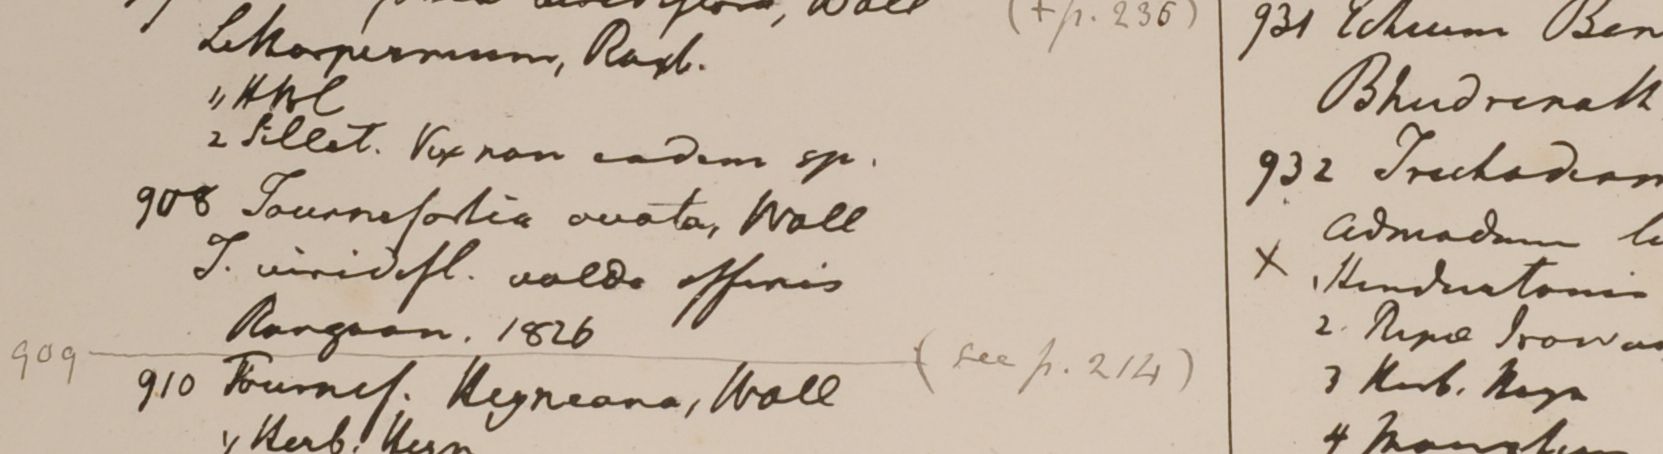 Wall (+ p. 236)
Lithospermum, Roxb.
1, HBC
2 Sillet. Vix non eadem sp.
908 Tournefortia ovata, Wall
T. viridifl. valde affinis
Rangoon. 1826
909 (see p. 214)
910 Tournef. Heyneana, Wall
1, Herb. Heyn
931 Echium Ben
Bhudrinath
932 Trichodesm
admodum
x 1, Hindustania
2. Ripae Irowa
3 Herb. Heyn
4